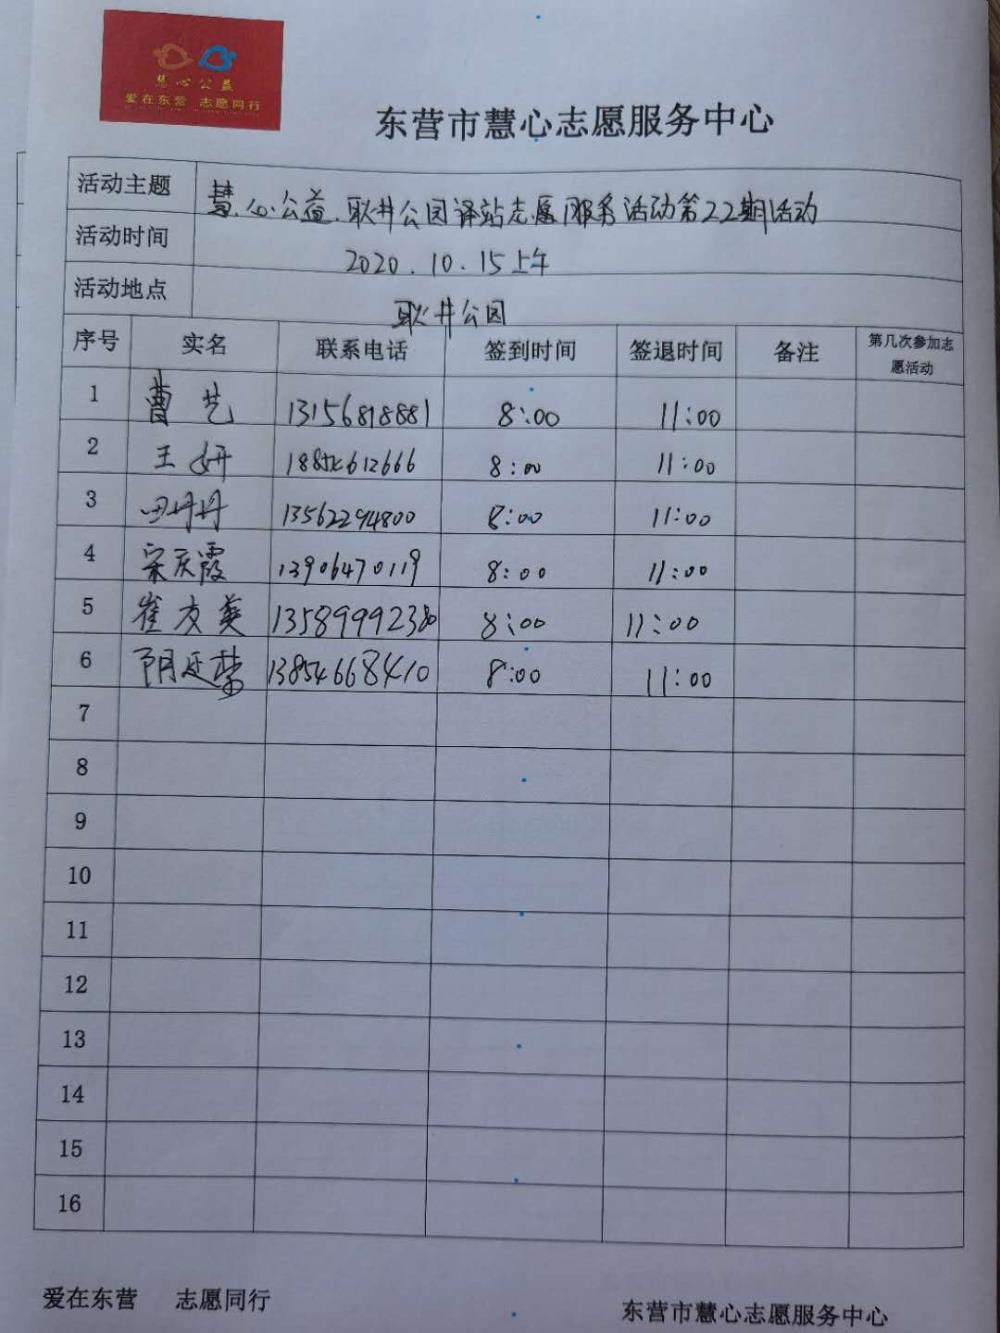 慧心公益
爱在东营 志愿同行
东营市慧心志愿服务中心
活动主题 慧心公益.耿井公园驿站志愿服务活动第22期活动
活动时间 2020.10.15上午
活动地点 耿井公园
序号 实名 联系电话 签到时间 签退时间 备注 第几次参加志愿活动
1 曹艺 13156818881 8:00 11:00
2 王妍 18854612666 8:00 11:00
3 田丹丹 13562294800 8:00 11:00
4 宋庆霞 13906470119 8:00 11:00
5 崔友英 13589992380 8:00 11:00
6 阴延荣 13854668410 8:00 11:00
7
8
9
10
11
12
13
14
15
16
爱在东营 志愿同行
东营市慧心志愿服务中心